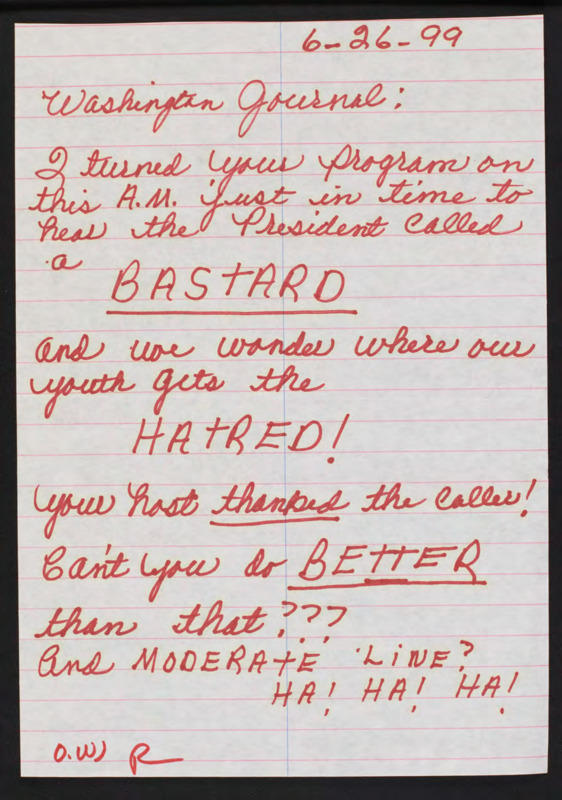 6-26-99
Washington Journal:
I turned your program on
this A.M. just in time to
hear the President called
a
BASTARD
and we wonder where our
youth gets the
HATRED!
your host thanked the caller!
Can't you do BETTER
than that???
And MODERATE LINE?
HA! HA! HA!